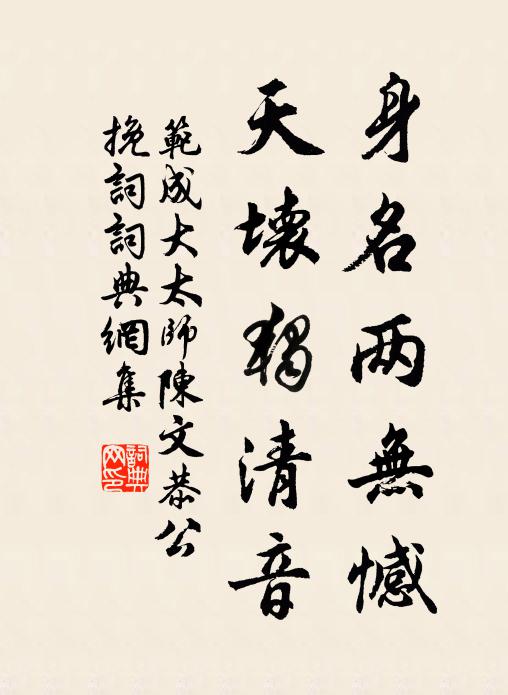 身名两無憾
天壞獨清音
範成大太師陳文恭公
挽詞詞典網集
詞典网印